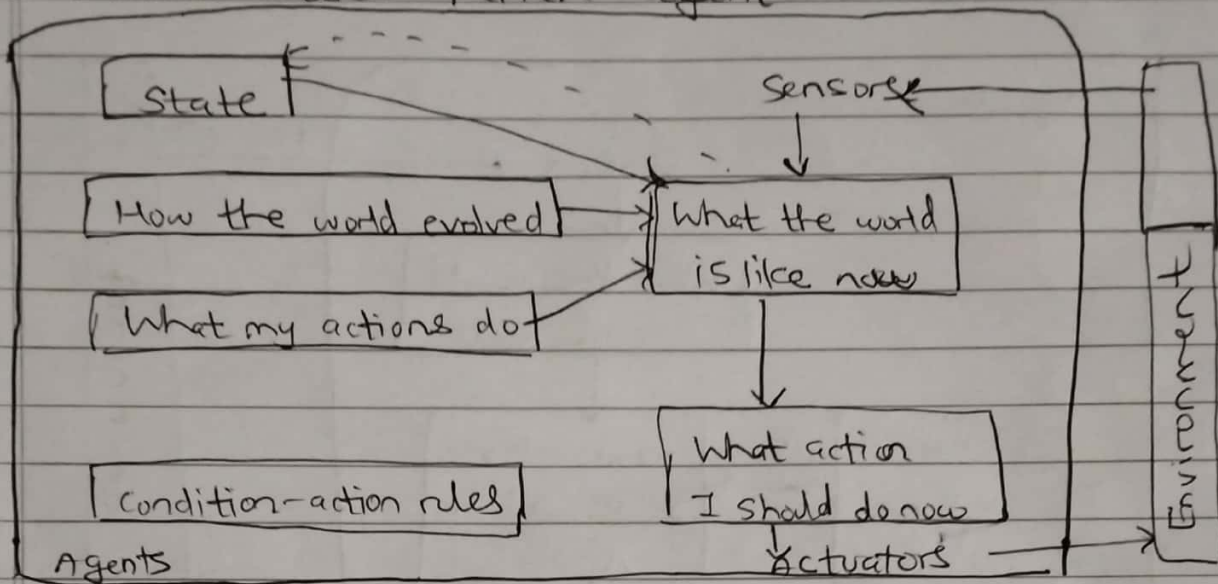 State
Sensors
How the world evolved
What the world
is like now
What my actions do
What action
I should do now
Condition-action rules
Agents
Actuators